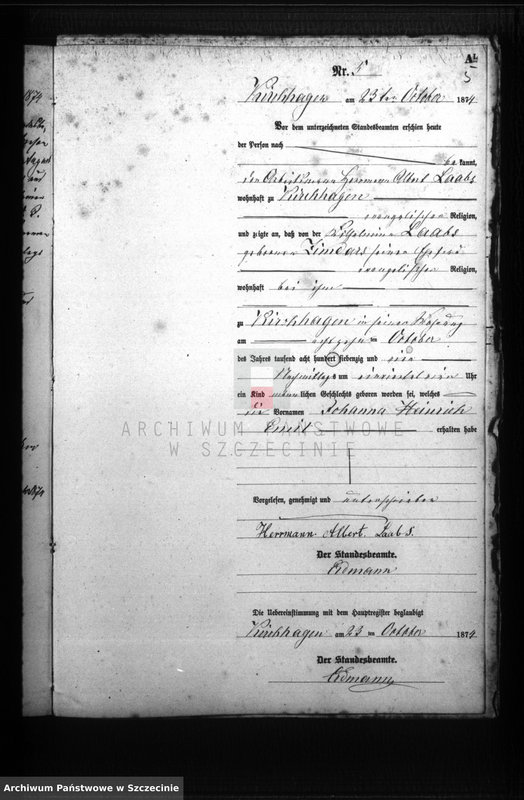 A
5
Nr. 5
Kirchhagen am 23 ten October 1874
Vor dem unterzeichneten Standesbeamten erschien heute
der Person nach
be kannt,
den Arbeitsmann Hermann Albert Laabs
wohnhaft zu Kirchhagen
evangelischer Religion,
und zeigte an, daß von der Wilhelmine Laabs
geborenen seiner Ehefrau
evangelischer Religion,
wohnhaft bei ihm
zu Kirchhagen in seiner Wohnung
am achtzehn ten October
des Jahres tausend acht hundert siebenzig und vier
Nachmittags um Uhr
ein Kind männ lichen Geschlechts geboren worden sei, welches
die Vornamen Johann Heinrich
Emil erhalten habe
Vorgelesen, genehmigt und unterschrieben
Herrmann Albert Laabs.
Der Standesbeamte.
Erdmann
Die Uebereinstimmung mit dem Hauptregister beglaubigt
Kirchhagen am 23 ten October 1874
Der Standesbeamte.
Erdmann
ARCHIWUM PAŃSTWOWE
W SZCZECINIE
Archiwum Państwowe w Szczecinie